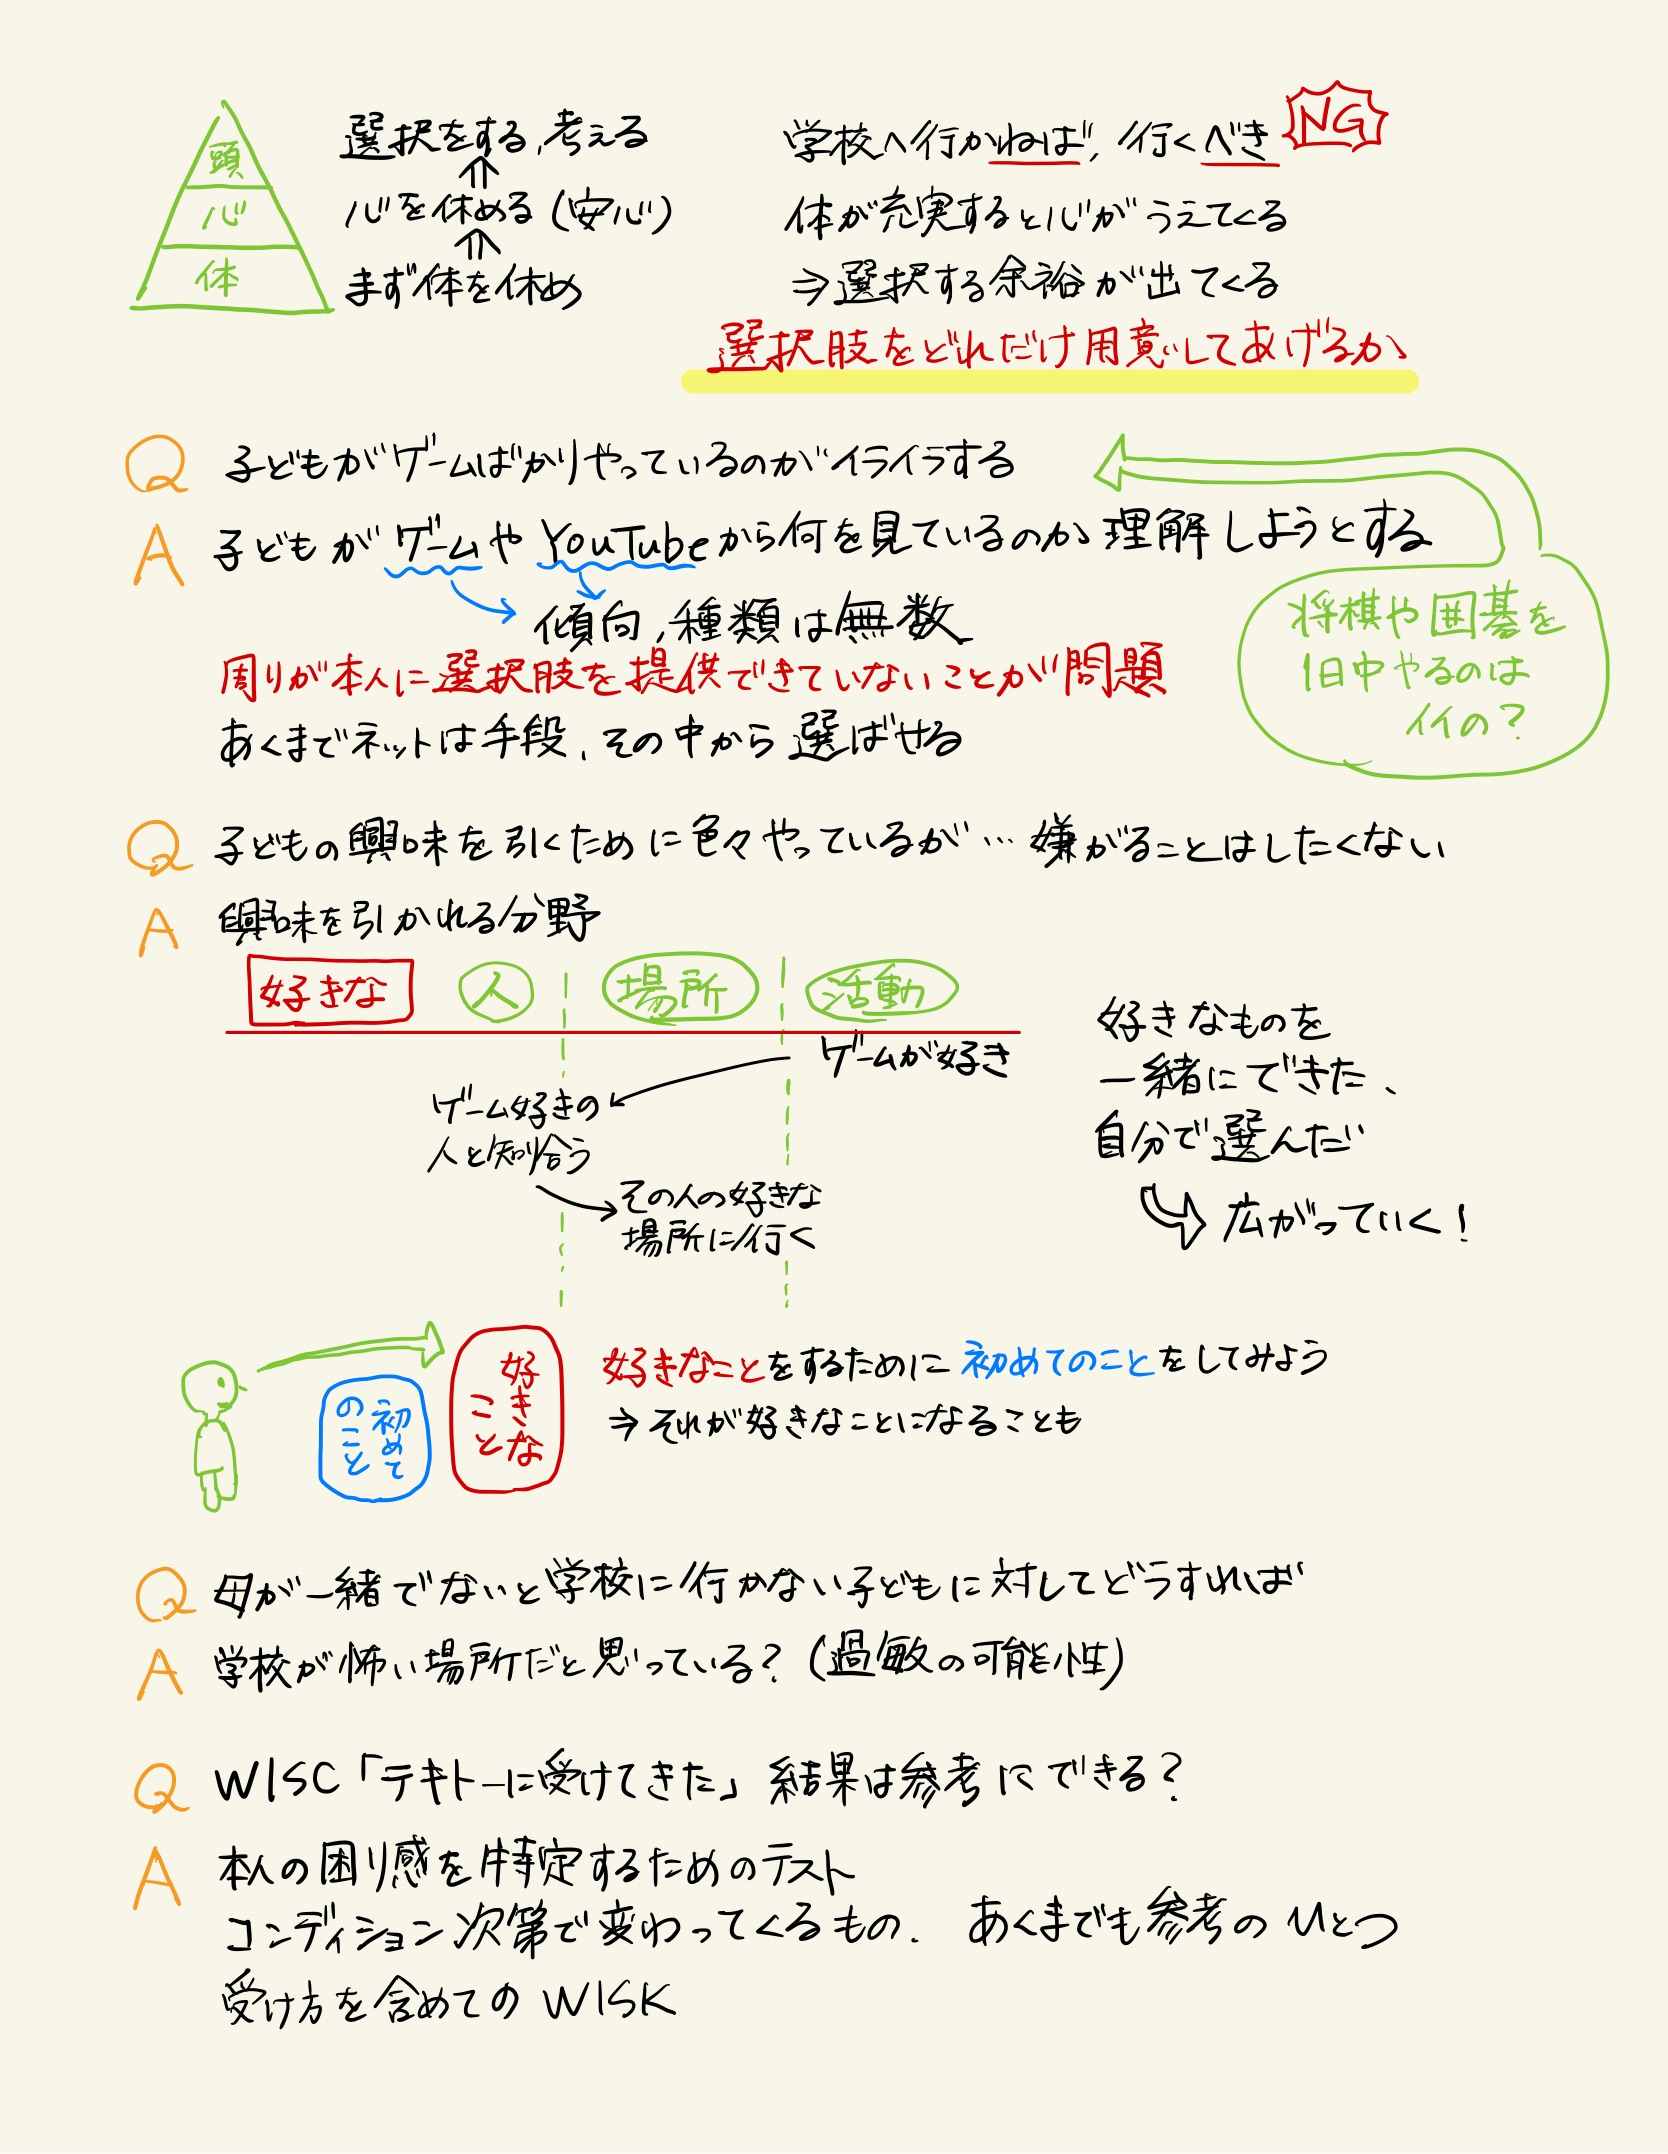 頭
心
体
選択をする,考える
心を休める(安心)
まず体を休め
学校へ行かねば,行くべき
NG
体が充実すると心がうえてくる
⇒選択する余裕が出てくる
選択肢をどれだけ用意してあげるか
Q 子どもがゲームばかりやっているのがイライラする
A 子どもがゲームやYouTubeから何を見ているのか理解しようとする
傾向,種類は無数
周りが本人に選択肢を提供できていないことが問題
あくまでネットは手段、その中から選ばせる
将棋や囲碁を
1日中やるのは
イイの?
Q 子どもの興味を引くために色々やっているが…嫌がることはしたくない
A 興味を引かれる分野
好きな 人 場所 活動
ゲームが好き
ゲーム好きの
人と知り合う
その人の好きな
場所に行く
好きなものを
一緒にできた、
自分で選んだ
広がっていく!
初めて
のこと
好きな
こと
好きなことをするために初めてのことをしてみよう
⇒それが好きなことになることも
Q 母が一緒でないと学校に行かない子どもに対してどうすれば
A 学校が怖い場所だと思っている?(過敏の可能性)
Q WISC「テキトーに受けてきた」結果は参考にできる?
A 本人の困り感を特定するためのテスト
コンディション次第で変わってくるもの. あくまでも参考のひとつ
受け方を含めてのWISK